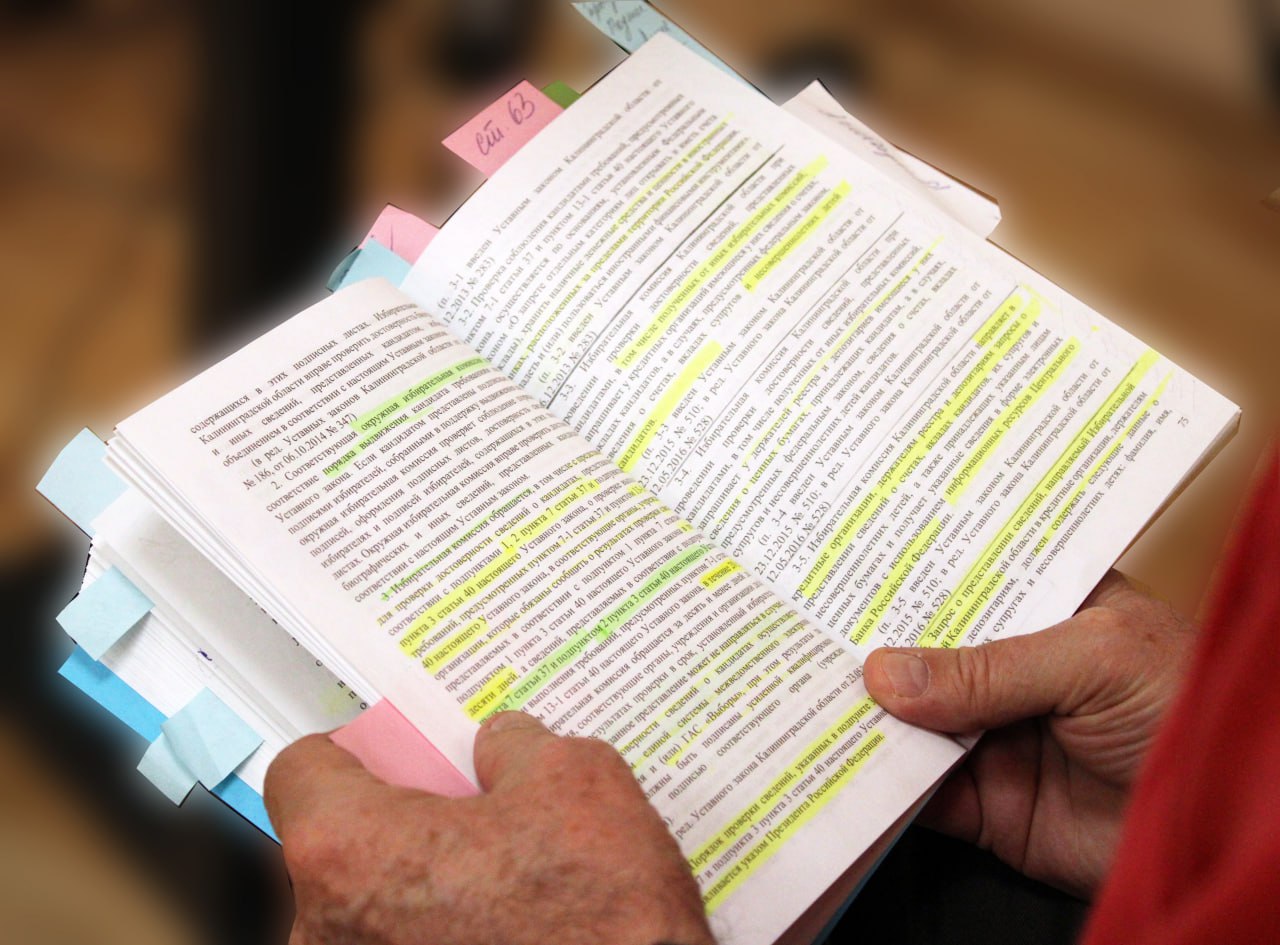 ст. 63
содержащихся в этих подписных листах. Избиратель
Калининградской области вправе проверить достоверность
и иных сведений, представленных кандидатом, из
объединением в соответствии с настоящим Уставным зако
(в ред. Уставных законов Калининградской области
№ 186, от 06.10.2014 № 347)
2. Соответствующая окружная избирательная комис
порядка выдвижения кандидата треб
Уставного закона. Если кандидатом представлены
подписями избирателей, собранными в поддержку выдвижени
окружная избирательная комиссия проверяет соблюдение
оформления подписных листов, достоверность
избирателях и подписей избирателей, содержащихся в
листах. Окружная избирательная комиссия вправе проверить
биографических и иных сведений, представленных
соответствии с настоящим Уставным законом.
3. Избирательная комиссия обращается, в том числе
для проверки достоверности сведений о кандидатах
соответствии с подпунктами 1, 2 пункта 7 статьи 37 и
пункта 3 статьи 40 настоящего Уставного закона, о
требований, предусмотренных пунктом 7-1 статьи 37 и пункт
40 настоящего Уставного закона, в соответствующие органы,
организации, которые обязаны сообщить о результатах провер
представляемых в соответствии с пунктом 1 пункта 7
подпунктом 1 пункта 3 статьи 40 настоящего Уставного закона
десяти дней, а сведений, представляемых в соответствии с
7 статьи 37 и подпунктом 2 пункта 3 статьи 40 настоящего
выполнения требований, предусмотренных пунктом 7-
13-1 статьи 40 настоящего Уставного закона, в течение
бирательная комиссия обращается за десять и менее дней
соответствующие органы, учреждения и организации
результатах проверки в срок, установленный избира
представление может не направляться в случае
верности сведений о кандидатах осуществл
единой системы межведомственного электр
и (или) ГАС «Выборы», при этом результаты
быть подписаны усиленной квалифициров
подписью соответствующего органа (учреж
ред. Уставного закона Калининградской области от 23.05
Порядок проверки сведений, указанных в подпункте
7 и подпункта 3 пункта 3 статьи 40 настоящего Уставного
вливается указом Президента Российской Федерации.
(п. 3-1 введен Уставным законом Калининградской области от
12.2013 № 283)
3-2. Проверка соблюдения кандидатами требований, предусмотренных
7-1 статьи 37 и пунктом 13-1 статьи 40 настоящего Уставного
осуществляется по основаниям, установленным Федеральным
«О запрете отдельным категориям лиц открывать и иметь счета
хранить наличные денежные средства и ценности в иностранных
расположенных за пределами территории Российской Федерации,
и (или) пользоваться иностранными финансовыми инструментами».
(п. 3-2 введен Уставным законом Калининградской области от
12.2013 № 283)
3-3. Избирательная комиссия Калининградской области при
проверки достоверности сведений, представленных
кандидатами, в том числе полученных от иных избирательных комиссий,
у кредитных организаций имеющиеся у них сведения о счетах,
кандидатов, а в случаях, предусмотренных федеральным законом,
о счетах, вкладах супругов и несовершеннолетних детей
(п. 3-3 введен Уставным законом Калининградской области от
23.12.2015 № 510; в ред. Уставного закона Калининградской области от
.05.2016 № 528)
3-4. Избирательная комиссия Калининградской области при
проверки достоверности сведений, представленных
кандидатами, в том числе полученных от иных избирательных комиссий,
запрашивает у держателей реестра и депозитариев имеющиеся у них
сведения о ценных бумагах, принадлежащих кандидатам, а в случаях,
предусмотренных федеральным законом, сведения о счетах, вкладах
супругов и несовершеннолетних детей кандидатов.
(п. 3-4 введен Уставным законом Калининградской области от
23.12.2015 № 510; в ред. Уставного закона Калининградской области от
12.05.2016 № 528)
3-5. Избирательная комиссия Калининградской области направляет в
кредитные организации, держателям реестра и депозитариям запросы о
представлении сведений о счетах, вкладах кандидатов, их супругов и
несовершеннолетних детей, а также принадлежащих указанным лицам
ценных бумагах и получает указанные сведения в форме электронных
документов с использованием информационных ресурсов Центрального
Банка Российской Федерации.
(п. 3-5 введен Уставным законом Калининградской области от
2.2015 № 510; в ред. Уставного закона Калининградской области от
2016 № 528)
Запрос о представлении сведений, направляемый Избирательной
Калининградской области в кредитные организации, держателям
депозитариям, должен содержать следующие данные о
супругах и несовершеннолетних детях: фамилия, имя,
75